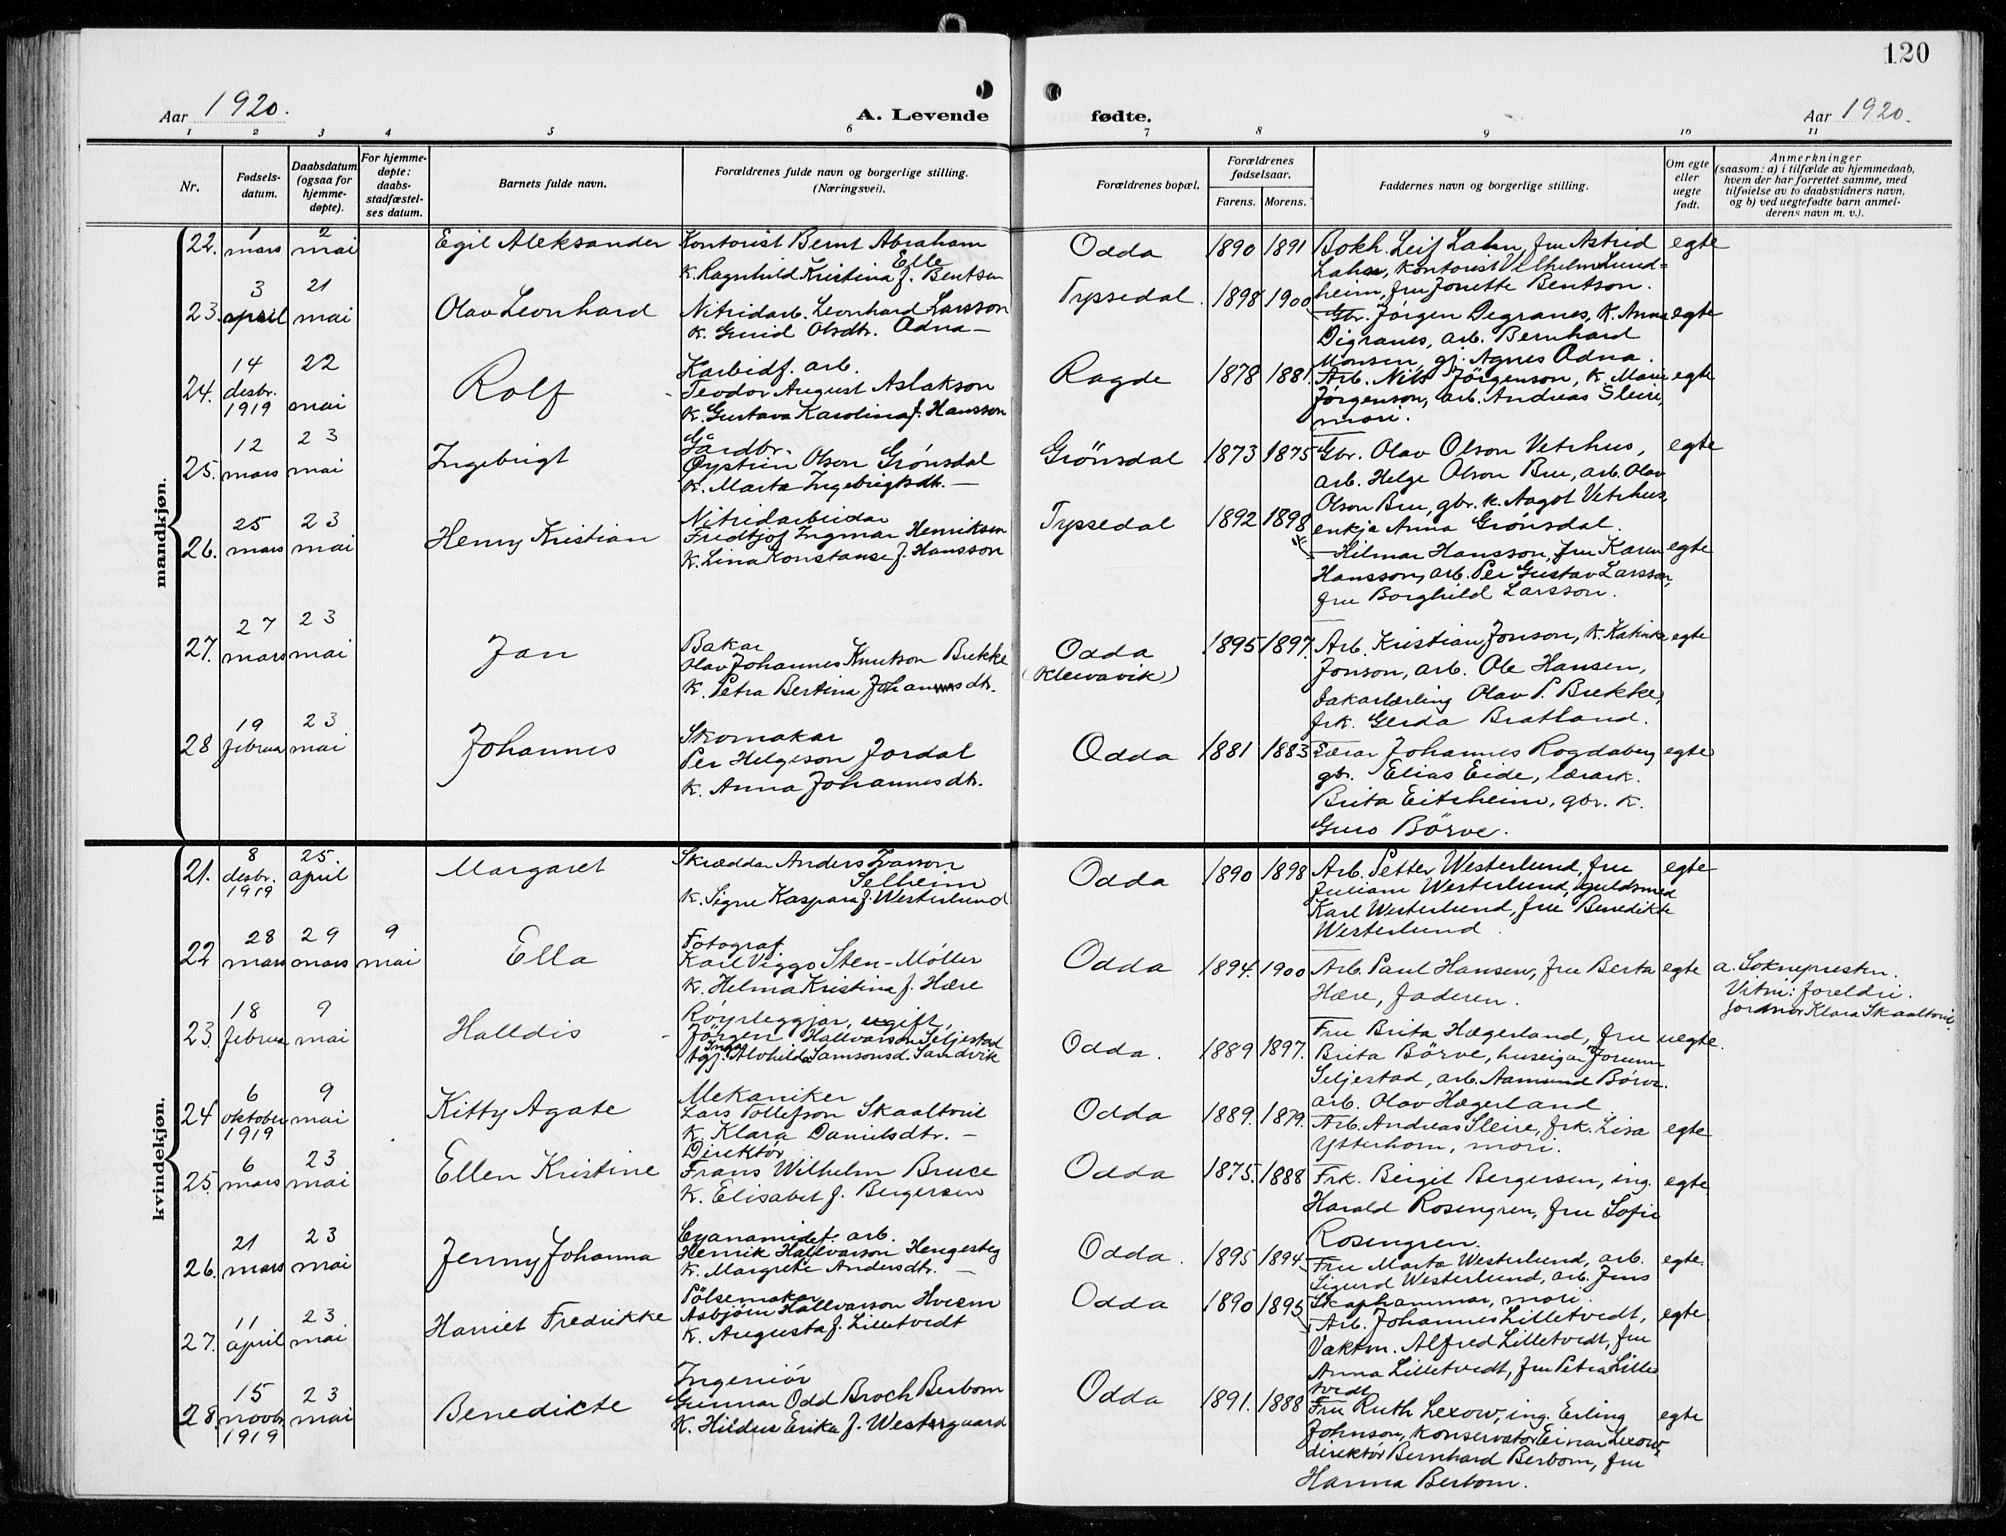 120
Aar 1920.
A. Levende fødte.
Aar 1920.
1 2 3 4 5 6 7 8 9 10 11
Nr.
Fødsels-
datum.
Daabsdatum
(ogsaa for
hjemme-
døpte).
For hjemme-
døpte:
daabs-
stadfæstel-
ses datum.
Barnets fulde navn.
Forældrenes fulde navn og borgerlige stilling.
(Næringsvei).
Forældrenes bopæl.
Forældrenes
fødselsaar.
Farens. Morens.
Faddernes navn og borgerlige stilling.
Om egte
eller
uegte
født.
Anmerkninger
(saasom: a) i tilfælde av hjemmedaab,
hvem der har forrettet samme, med
tilføielse av to daabsvidners navn,
og b) ved uegtefødte barn anmel-
derens navn m. v.).
mandkjøn.
22. 1 mars 2 mai Egil Aleksander
Kontorist Bernt Abraham
Elle
k. Ragnhild Kristina f. Bentsen
Odda 1890 1891
Bokh. Leif Lahn, fru Astrid
Lahn, kontorist Vilhelm Lund=
heim, fru Jonette Bentson.
egte
23. 3 april 21 mai Olav Leonhard
Nitridarb. Leonhard Larsson
k. Gurid Olsdtr. Odna —
Tyssedal. 1898 1900
Gbr. Jørgen Digranes, k. Anna
Digranes, arb. Bernhard
Monsen, gj. Agnes Odna.
egte
24. 14 desbr. 1919 22 mai Rolf
Karbidf. arb.
Teodor August Aslakson
k. Gustava Karolina f. Hansson
Ragde 1878 1881
Arb. Nils Jørgenson, k. Marie
Jørgenson, arb. Andreas Sleire,
mori.
egte
25. 12 mars 23 mai Ingebrigt
Gardbr.
Øystein Olson Grønsdal
k. Marta Ingebrigtsdtr. —
Grønsdal 1873 1875
Gbr. Olav Olson Vetrhus,
arb. Helge Olson Bru, arb. Olav
Olson Bru, gbr. k. Aagot Vetrhus,
enkja Anna Grønsdal.
egte
26. 25 mars 23 mai Henry Kristian
Nitridarbeidar
Fredtjof Ingmar Henriksen
k. Lina Konstanse f. Hansson
Tyssedal 1892 1898
Hilmar Hansson, fru Karen
Hansson, arb. Per Gustav Larsson,
fru Borghild Larsson.
egte
27. 27 mars 23 mai Jan
Bakar
Olav Johannes Knutson Brekke
k. Petra Bertina Johannesdtr.
Odda
(Kleivavik)
1895 1897.
Arb. Kristian Jonson, k. Katinka
Jonson, arb. Ole Hansen,
bakarlærling Olav P. Brekke,
frk. Gerda Bratland.
egte
28 19 februa 23 mai Johannes
Skomakar
Per Helgeson Jordal
k. Anna Johannesdtr.
Odda 1881 1883
Lærar Johannes Rogdaberg
gbr. Elias Eide, lærark.
Brita Eitrheim, gbr. k.
Guro Børve.
egte
kvindekjøn.
21. 8 desbr. 1919 25 april Margaret
Skræddar Anders Ivarson
Selheim
k. Signe Kaspara f. Westerlund
Odda 1890 1898
Arb. Petter Westerlund, fru
Juliann Westerlund, guldsmed
Karl Westerlund, fru Benedikte
Westerlund.
egte
22 28 mars 29 mars 9 mai Ella
Fotograf
Karl Viggo Sten-Møller
k. Helma Kristina f. Hære
Odda 1894. 1900
Arb. Paul Hansen, fru Berta
Hære, faderen.
egte
a. Soknepresten.
Vitni: foreldri.
Jordmor Klara Skaaltveit
23. 18 februa 9 mai Halldis
Røyrleggjar, ugift,
Jørgen Hallvarson Seljestad
og gj. Inga Alvhilda Samsonsd. Sandvik
Odda. 1889 1897.
Fru Brita Hægerland, fru
Brita Børve, huseigar Jorunn
Seljestad, arb. Aamund Børve.
arb. Olav Hægerland
uegte.
24 6 oktober 1919 9 mai Kitty Agate
Mekaniker
Lars Tollefson Skaaltveit
k. Klara Danielsdtr. —
Odda 1889. 1879.
Arb. Andreas Sleire, frk. Lisa
Ytterhom, mori.
egte
25. 6 mars 23 mai Ellen Kristine
Direktør
Frans Wilhelm Bruce
k. Elisabet f. Bergersen
Odda 1875. 1888
Frk. Beigit Bergersen, ing.
Harald Rosengren, fru Sofie
Rosengren.
egte
26. 21 mars 23 mai Jenny Johanna
Cyanamidf. arb.
Henrik Hallvarson Hengesteg
k. Margrete Andersdtr. —
Odda. 1895 1894
Fru Marta Westerlund, arb.
Sigurd Westerlund, arb. Jens
Skaphammar, mori.
egte.
27. 11 april 23 mai Harriet Fredrikke
Pølsemakar
Asbjørn Hallvarson Hvesm
k. Augusta f. Lilletvedt
Odda 1890 1895
Arb. Johannes Lilletvedt,
Vaktm. Alfred Lilletvedt, fru
Anna Lilletvedt, fru Petra Lille
tvedt
egte.
28. 15 novbr. 1919 23 mai Benedicte
Ingeniør
Gunnar Odd Broch Berbom
k. Hildur Erika f. Westergaard
Odda 1891. 1888
Fru Ruth Lexow, ing. Erling
Johnson, konservator Einar Lexow,
direktør Bernhard Berbom, fru
Hanna Berbom.
egte